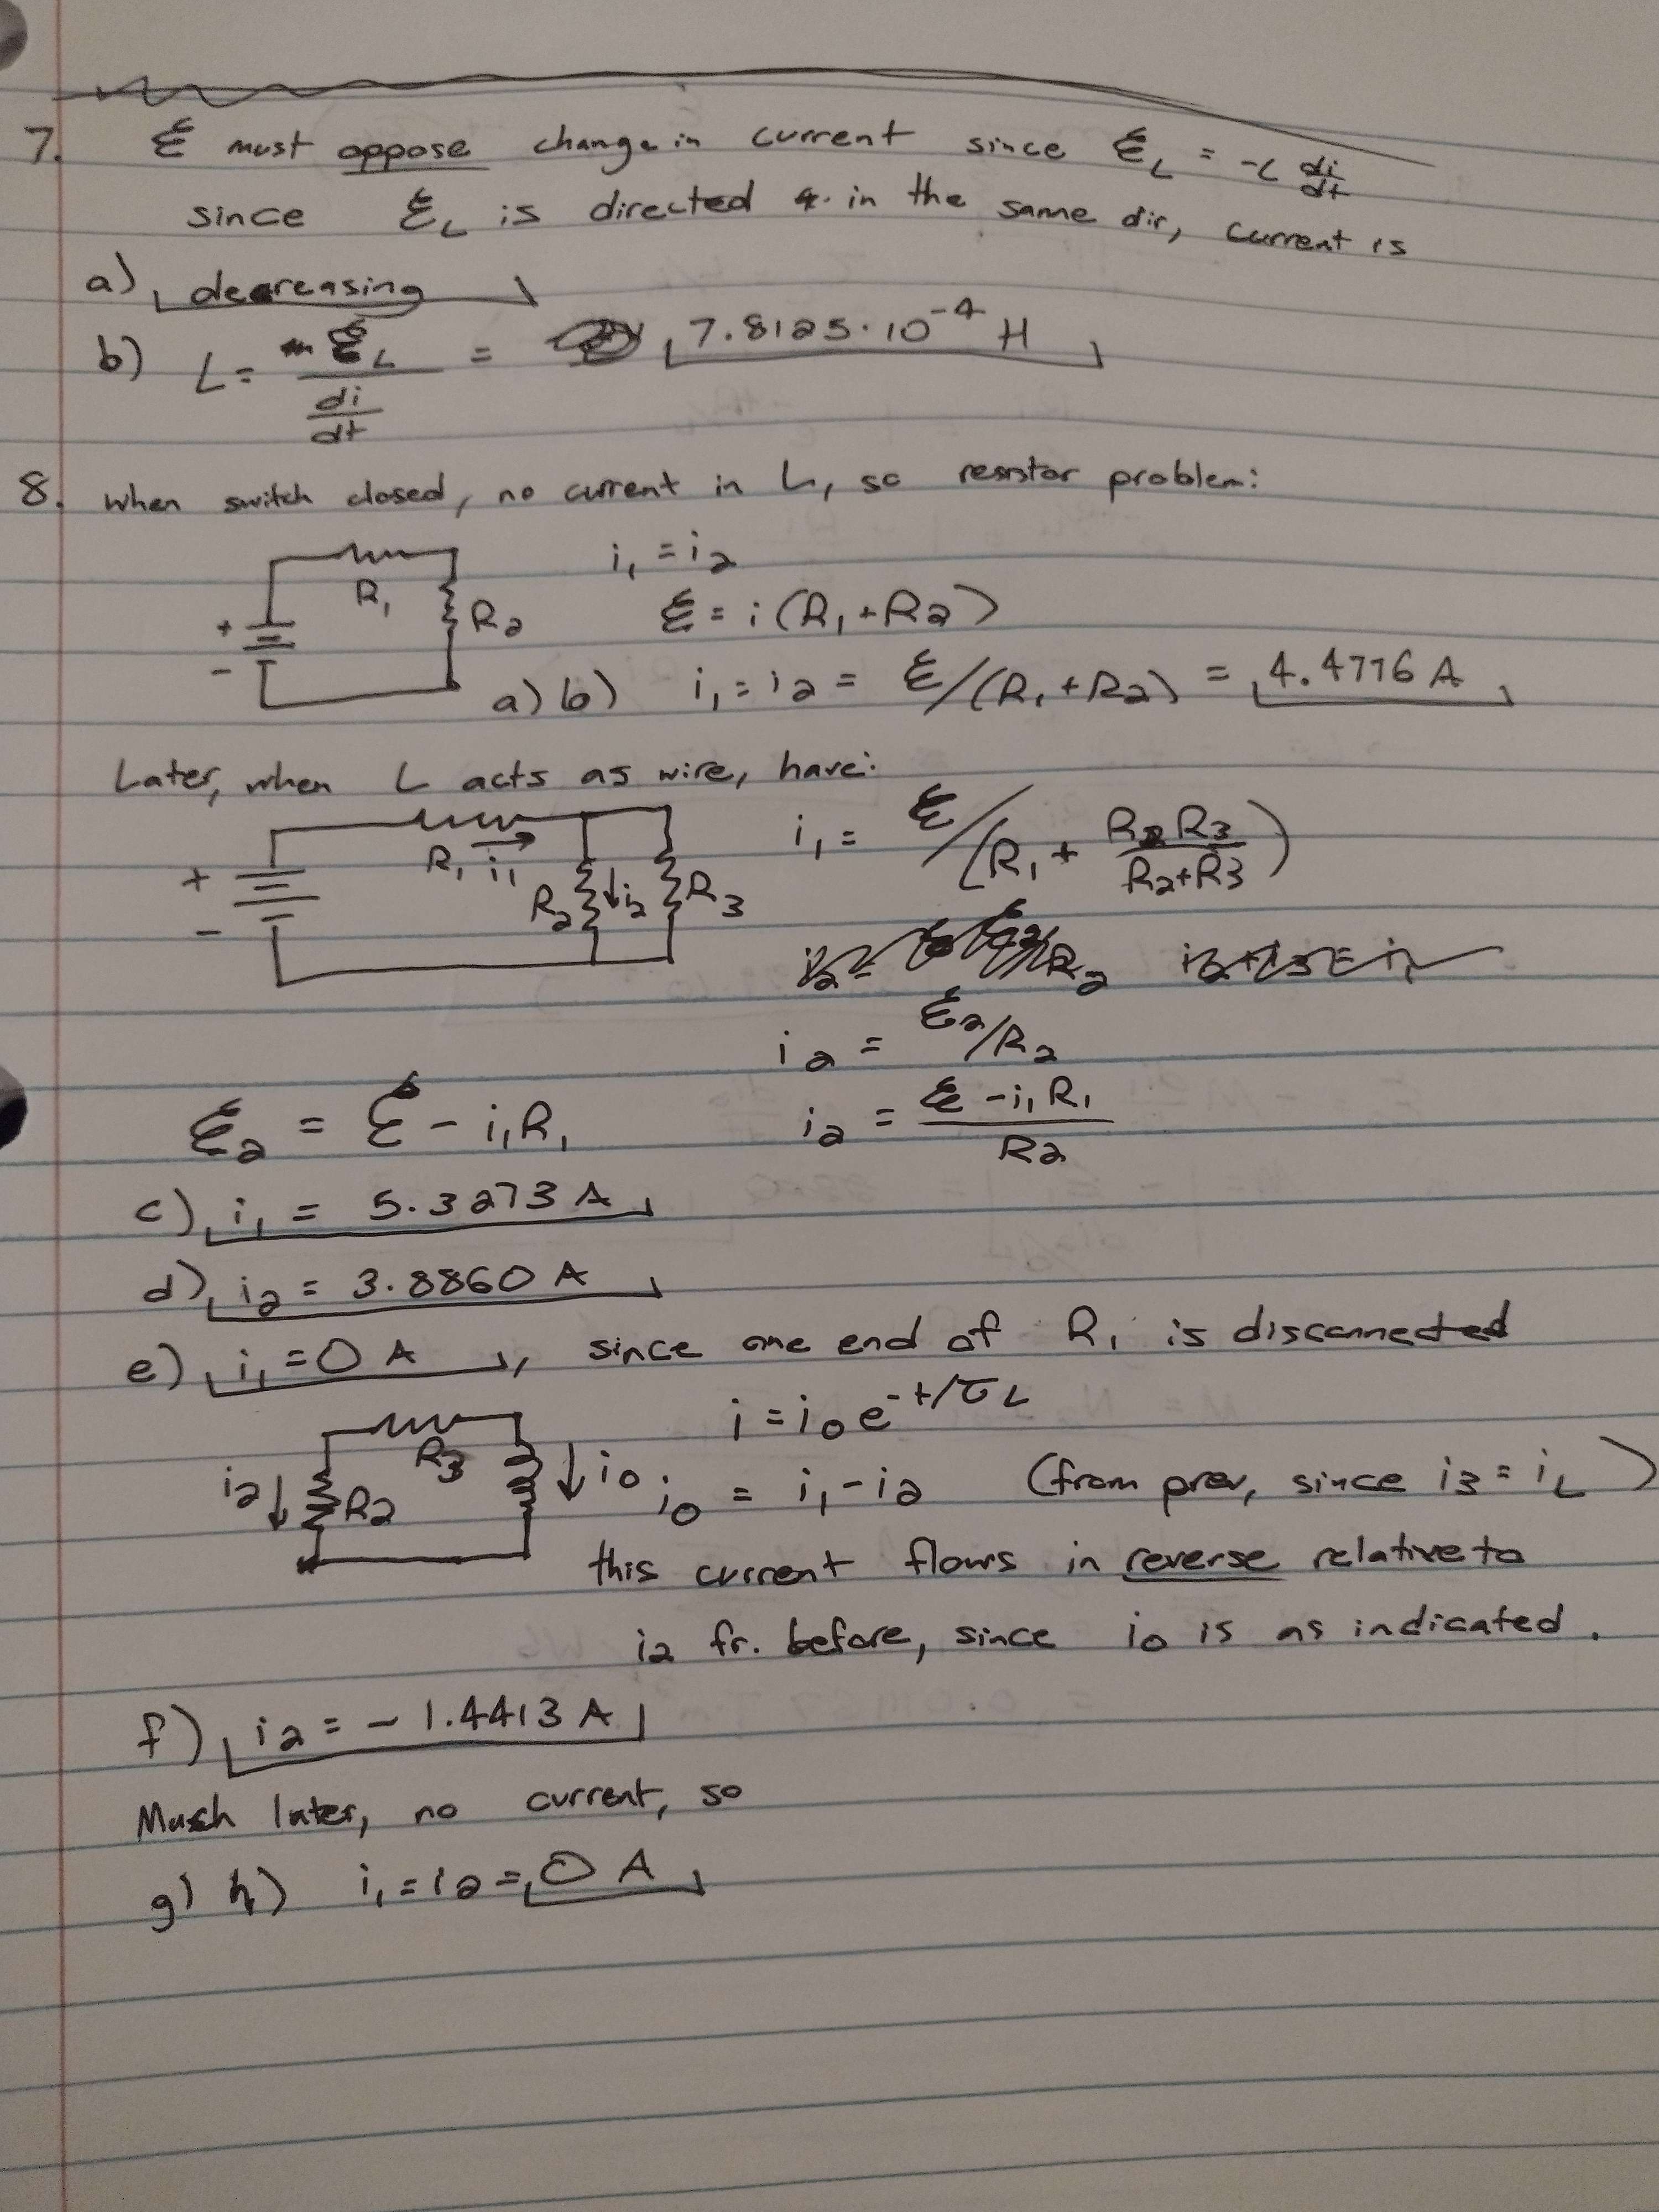 7. ℰ must oppose change in current since ℰ_L = -L di/dt
since ℰ_L is directed in the same dir, current is
a) decreasing
b) L = ℰ_L / (di/dt) = 7.8125·10^-4 H
8. when switch closed, no current in L, so resistor problem:
+ - R₁ R₂
i₁ = i₂
ℰ = i(R₁+R2)
a) b) i₁ = i₂ = ℰ/(R₁+R2) = 4.4776 A
Later, when L acts as wire, have:
+ - R₁ i₁ R₂ i₂ R₃
i₁ = ℰ/(R₁ + R2R3/(R2+R3))
i₂ = ℰ₂/R₂
ℰ₂ = ℰ - i₁R₁
i₂ = (ℰ - i₁R₁)/R2
c) i₁ = 5.3273 A
d) i₂ = 3.8860 A
e) i₁ = 0 A, since one end of R₁ is disconnected
i = i₀e^(-t/τ_L)
i₂ R2 R3 i₀
i₀ = i₁-i₂ (from prev, since i₃ = i_L)
this current flows in reverse relative to
i₂ fr. before, since i₀ is as indicated.
f) i₂ = - 1.4413 A
Much later, no current, so
g) h) i₁ = i₂ = 0 A